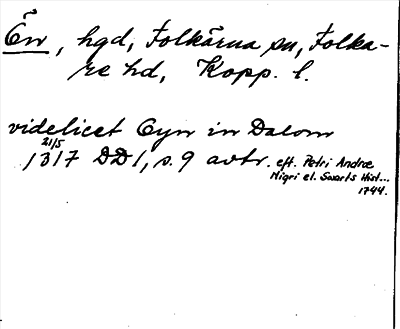 Ön, hgd, Folkärna sn, Folka-
re hd, Kopp. l.
videlicet Oyn in Dalom
21/5
1317 DD 1, s. 9 avtr. eft. Petri Andræ
Nigri el. Swarts Hist...
1744.